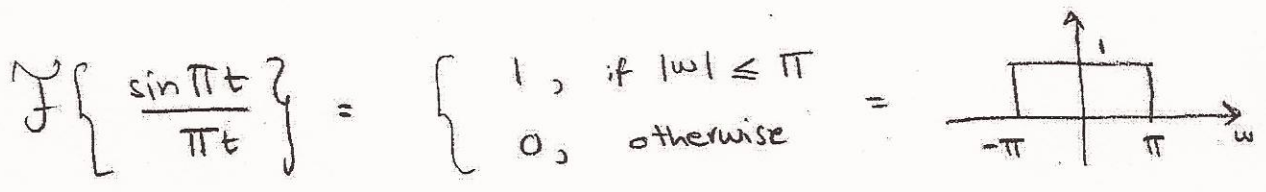 ℱ{ sin πt / πt } = { 1, if |w| ≤ π
0, otherwise
= 1
-π π w